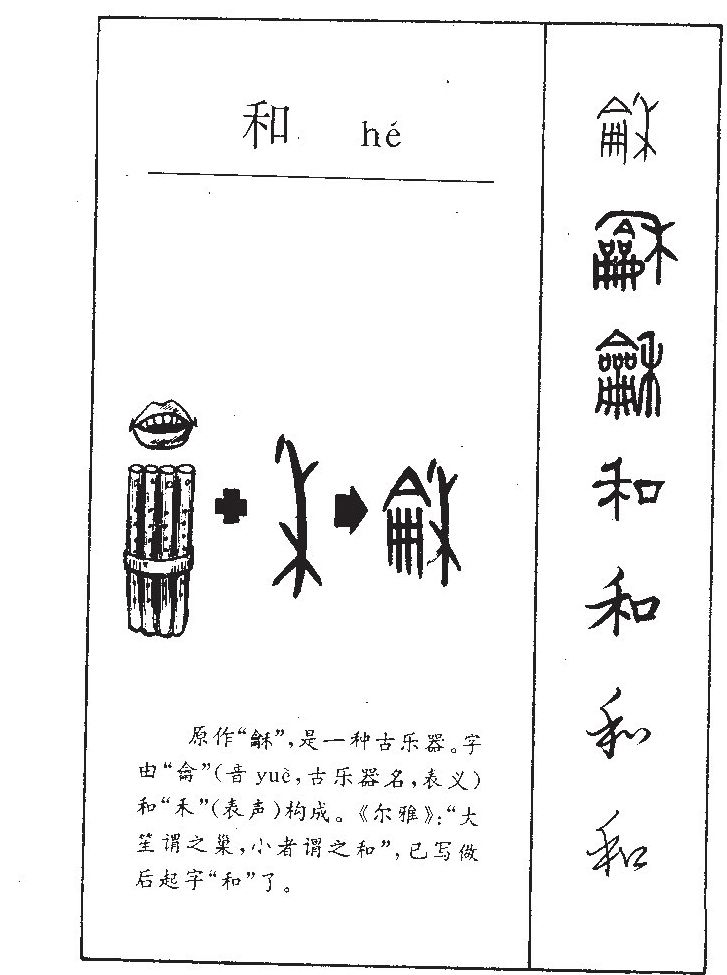 和 hé
原作“龢”，是一种古乐器。字
由“龠”（音 yuè，古乐器名，表义）
和“禾”（表声）构成。《尔雅》：“大
笙谓之巢，小者谓之和”，已写做
后起字“和”了。
龢
龢
龢
和
和
和
和